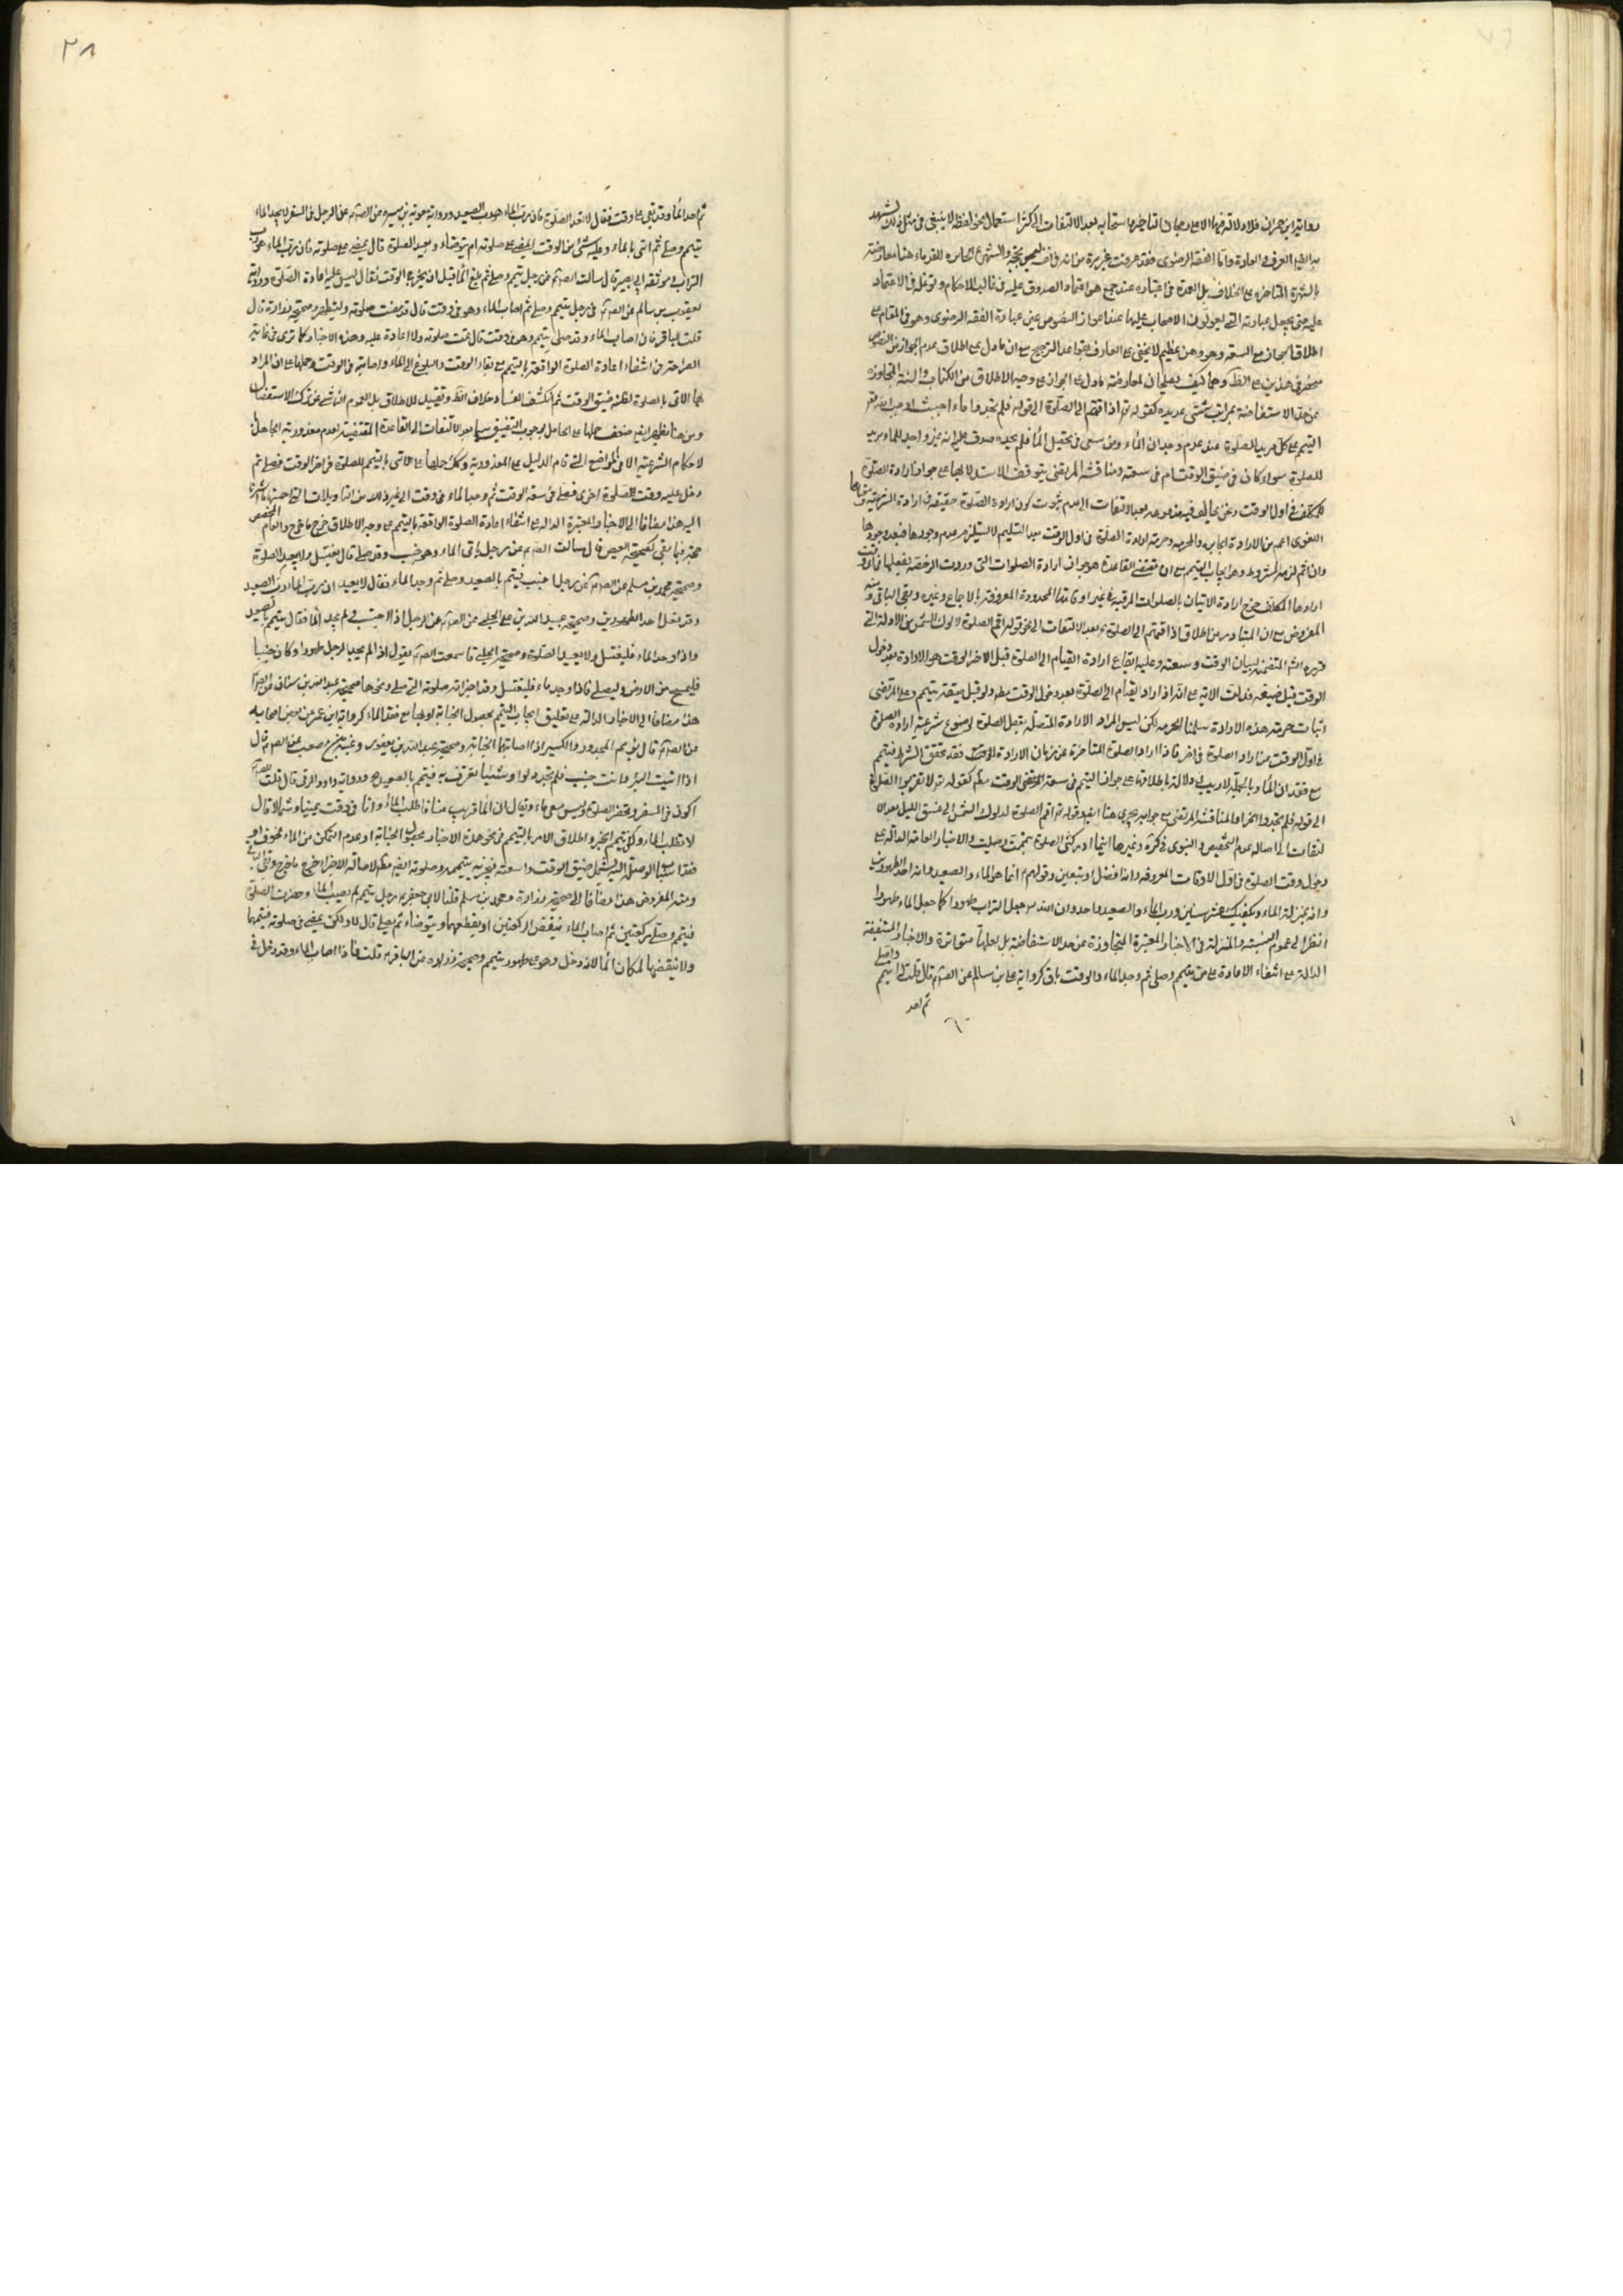 رواية ابن حمران فلا دلالة فيها الا على رجحان التاخير واستحبابه بعد الالتفات الى كثرة استعمال نحو لفظ لا ينبغى فى مثل ذلك
العرف والعادة واما الفقه الرضوى فقد عرفت غير مرة
بالشهرة المتاخرة على الخلاف بل العمدة فى اعتباره عند جمع هو اعتماد الصدوق عليه فى غالب الاحكام
عليه حتى يجعل عبارته التى يعولون الاصحاب عليها عند اعواز النصوص عين عبارة الفقه الرضوى وهو فى المقام على
اطلاق الجواز مع السعة وهو وهن عظيم لا يخفى على العارف بقواعد الترجيح مع ان ما دل على اطلاق عدم الجواز من النصوص
منحصر فى هذين على الظ وهما كيف يصلحان لمعارضة ما دل على الجواز على وجه الاطلاق من الكتاب والسنة المتجاوزة
عن حد الاستفاضة بمراتب شتى عديدة كقوله تعالى اذا قمتم الى الصلوة الى قوله فلم تجدوا ماء حيث اوجب الله تعالى
التيمم على كل مريد للصلوة عند عدم وجدان الماء ومن سعى فى تحصيل الماء فلم يجده صدق عليه انه غير واجد للماء مريد
للصلوة سواء كان فى ضيق الوقت ام فى سعته ومناقشة المرتضى بتوقف الاستدلال بها على جواز ارادة الصلوة
للمكلف فى اول الوقت ونحن نخالف فيه مدفوعة بعد الالتفات الى عدم ثبوت كون ارادة الصلوة حقيقة فى ارادة الشرعية
اللغوى اعم من الارادة الجايزه والمحرمه وحرمة ارادة الصلوة فى اول الوقت بعد التسليم لا يستلزم عدم وجودها فبعد وجودها
وان اثم لزمه المشروط وهو ايجاب التيمم مع ان مقتضى القاعدة هو جواز ارادة الصلوات التى وردت الرخصة بفعلها
ارادها المكلف خرج ارادة الاتيان بالصلوات المرتبة فى غير اوقاتها المحدودة المعروفة بالاجماع وغيره وبقى الباقى
المفروض مع ان المتبادر من اطلاق اذا قمتم الى الصلوة بعد الالتفات الى نحو قوله اقم الصلوة لدلوك الشمس من الادلة التى
المتضمنة لبيان الوقت وسعته وعليه ايقاع ارادة القيام الى الصلوة قبل الاخر الوقت هو الارادة بعد دخول
الوقت قبل ضيقه فدلت الاية على انه اذا اراد القيام الى الصلوة بعد دخول الوقت مطلقا ولو قبل ضيقه يتيمم وعلى المرتضى
اثبات حرمة هذه الارادة سلمنا الحرمة لكن ليس المراد الارادة المتصلة بفعل الصلوة
فى اول الوقت من اراد الصلوة فى اخره فاذا اراد الصلوة المتاخرة عن زمان الارادة فقد تحقق الشرط فيتيمم
مع فقدان الماء وبالجملة لا ريب فى دلالة باطلاقها على جواز التيمم فى سعة الوقت مطلقا كقوله تعالى لا تقربوا الصلوة
الى قوله فلم تجدوا الخ واما المناقشة المرتضى مع جوابه يجرى هنا ايضا وقوله تعالى اقم الصلوة لدلوك الشمس الى غسق الليل بعد الا
لتفات الى اصالة عدم التخصيص والنبوى ذكره وغيرها اينما ادركتنى الصلوة تيممت وصليت والاخبار العامة الدالة على
دخول وقت الصلوة فى اول الاوقات المعروفة وانه افضل الوقتين وقولهم انما هو الماء والصعيد وانه احد الطهورين
وانه بمنزلة الماء ويكفيك عشر سنين ورب الماء والصعيد واحد وان الله جعل التراب طهورا كما جعل الماء طهورا
انظر الى عموم التشبيه والمنزلة فى الاخبار المعتبرة المتجاوزة عن حد الاستفاضة بل لعلها متواترة والاخبار المستفيضة
الدالة على انتفاء الاعادة على من تيمم وصلى ثم وجد الماء والوقت باق كرواية على بن سالم عن الصادق قال قلت له اتيمم واصلى
ثم اجد
ثم اجد الماء وقد بقى على وقت فقال لا تعد الصلوة فان رب الماء هو رب الصعيد ورواية معوية بن ميسره عن الصادق عن الرجل فى السفر لا يجد الماء
تيمم وصلى ثم اتى بالماء وعليه شىء من الوقت ايمضى على صلوته ام يتوضاء ويعيد الصلوة قال يمضى على صلوته فان رب الماء هو رب
التراب وموثقة ابى بصير قال سالت الصادق عن رجل تيمم وصلى ثم بلغ الماء قبل ان يخرج الوقت فقال ليس عليه اعادة الصلوة ورواية
يعقوب بن سالم عن الصادق فى رجل تيمم وصلى ثم اصاب الماء وهو فى وقت قال قد مضت صلوته وليتطهر وصحيحة زرارة قال
قلت للباقر فان اصاب الماء وقد صلى بتيمم وهو فى وقت قال تمت صلوته ولا اعادة عليه وهذه الاخبار كما ترى فى غاية
الصراحة فى انتفاء اعادة الصلوة الواقعة بالتيمم مع بقاء الوقت والبلوغ الى الماء واصابته فى الوقت وحملها على ان المراد
بها الاتى بالصلوة لظنه ضيق الوقت ثم انكشف الفساد خلاف الظ وتقييد للاطلاق بل العموم الناشى عن ترك الاستفصال
ومن هنا يظهر ايضا ضعف حملها على الجاهل بوجوب التضييق سيما بعد الالتفات الى القاعدة المقتضية لعدم معذورية الجاهل
لاحكام الشرعية الا فى المواضع التى قام الدليل على المعذورية وكذلك حملها على الاتى بالتيمم للصلوة فى اخر الوقت فصلى ثم
دخل عليه وقت الصلوة اخرى فصلى فى سعة الوقت ثم وجد الماء فى وقت الى غير ذلك من التاويلات
اليه هذا مضافا الى الاخبار المعتبرة الدالة على انتفاء اعادة الصلوة الواقعة بالتيمم على وجه الاطلاق خرج ما خرج والعام المخصص
حجة فيما بقى كصحيحة العيص قال سالت الصادق عن رجل ياتى الماء وهو جنب وقد صلى قال يغتسل ولا يعيد الصلوة
وصحيحة محمد بن مسلم عن الصادق عن رجل اجنب فتيمم بالصعيد وصلى ثم وجد الماء فقال لا يعيد ان رب الماء رب الصعيد
وقد فعل احد الطهورين وصحيحة عبيد الله بن على الحلبى عن الصادق عن الرجل اذا اجنب ولم يجد الماء فقال يتيمم بالصعيد
واذا وجد الماء فليغتسل ولا يعيد الصلوة وصحيحة الحلبى قال سمعت الصادق يقول اذا لم يجد الرجل طهورا وكان جنبا
فليمسح من الارض وليصلى فاذا وجد ماء فليغتسل وقد اجزاته صلوته التى صلى ونحوها صحيحة عبد الله بن سنان عن الصادق
هذا مضافا الى الاخبار الدالة على تعليق ايجاب التيمم بحصول الجنابة او بها مع فقد الماء كرواية ابن عمير عن بعض اصحابه
عن الصادق قال يؤمم المجدور والكسير اذا اصابتهما الجنابة وصحيحة عبد الله بن يعفور وعنبسة بن مصعب عن الصادق قال
اذا اتيت البئر وانت جنب فلم تجد دلوا وشيئا تغرف به فتيمم بالصعيد ورواية داود الرقى قال قلت للصادق
اكون فى السفر وتحضر الصلوة وليس معى ماء ويقال ان الماء قريب منا فاطلب الماء وانا فى وقت يمينا وشمالا قال
لا تطلب الماء ولكن تيمم الخبر واطلاق الامر بالتيمم فى نحو هذه الاخبار بحصول الجنابة او عدم التمكن من الماء لخوف او
فقد اسباب الوصلة اليه يشمل ضيق الوقت وسعته فيجزيه بتيممه وصلوته ايضا مطلقا لاصالة الاجزاء خرج ما خرج وبقى الباقى
ومنه المفروض هذا مضافا الى صحيحة زرارة ومحمد بن مسلم قلنا لابى جعفر رجل تيمم لم يصب الماء وحضرت الصلوة
فتيمم وصلى ركعتين ثم اصاب الماء اينقض الركعتين او يقطعهما ويتوضاء ثم يصلى قال لا ولكن يمضى فى صلوته فيتمها
ولا ينقضها لمكان الماء لانه دخل وهو على طهور بتيمم وصحيحة زرارة عن الباقر قلت فاذا اصاب الماء وقد دخل فى
٢٨